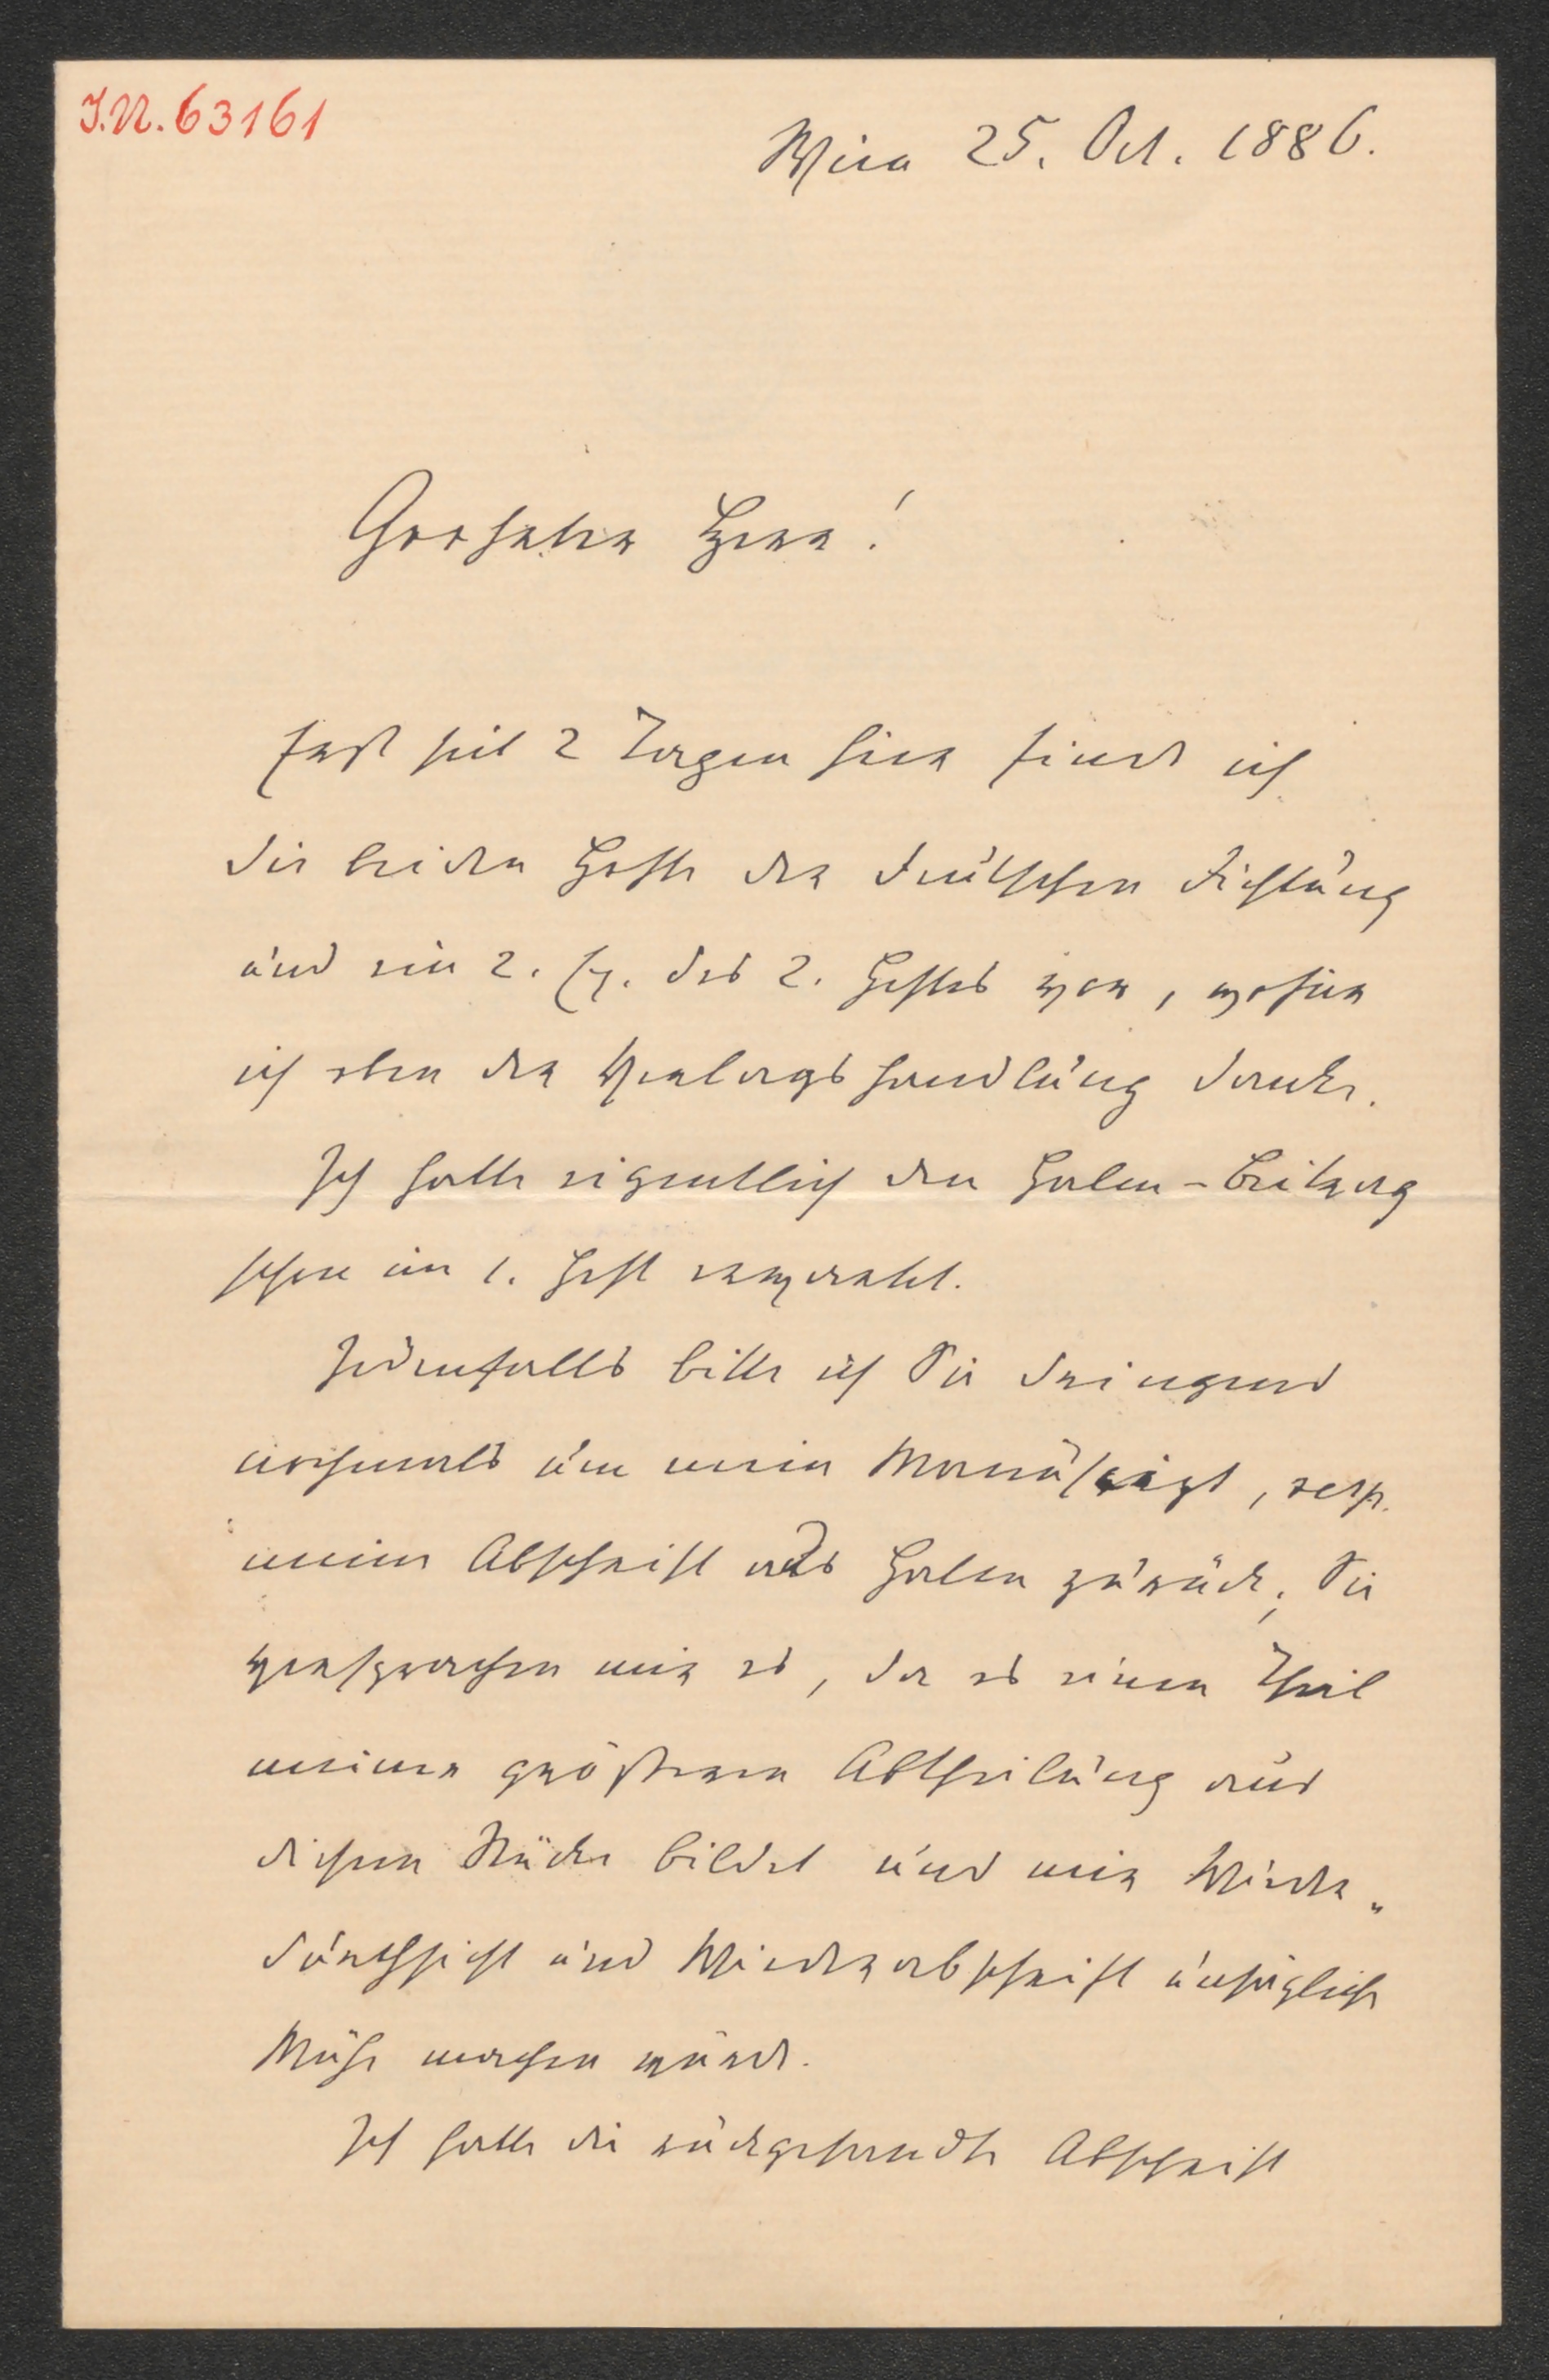 I.N. 63161
Wien 25. Oct. 1886.
Geehrter Herr!
Erst seit 2 Tagen hier finde ich
die beiden Hefte der Deutschen Dichtung
und ein 2. Ex. des 2. Heftes vor, wofür
ich eben der Verlagshandlung danke.
Ich hatte eigentlich den Halm-Beitrag
schon im 1. Heft erwartet.
Jedenfalls bitte ich Sie dringend
nochmals um mein Manuskript, resp.
meine Abschrift aus Halm zurück; Sie
versprachen mir es, da es einen Theil
meiner größeren Abtheilung aus
diesem Stücke bildet und mir Wieder„
durchsicht und Wiederabschrift unsägliche
Mühe machen würde.
Ich hatte die rückgesandte Abschrift